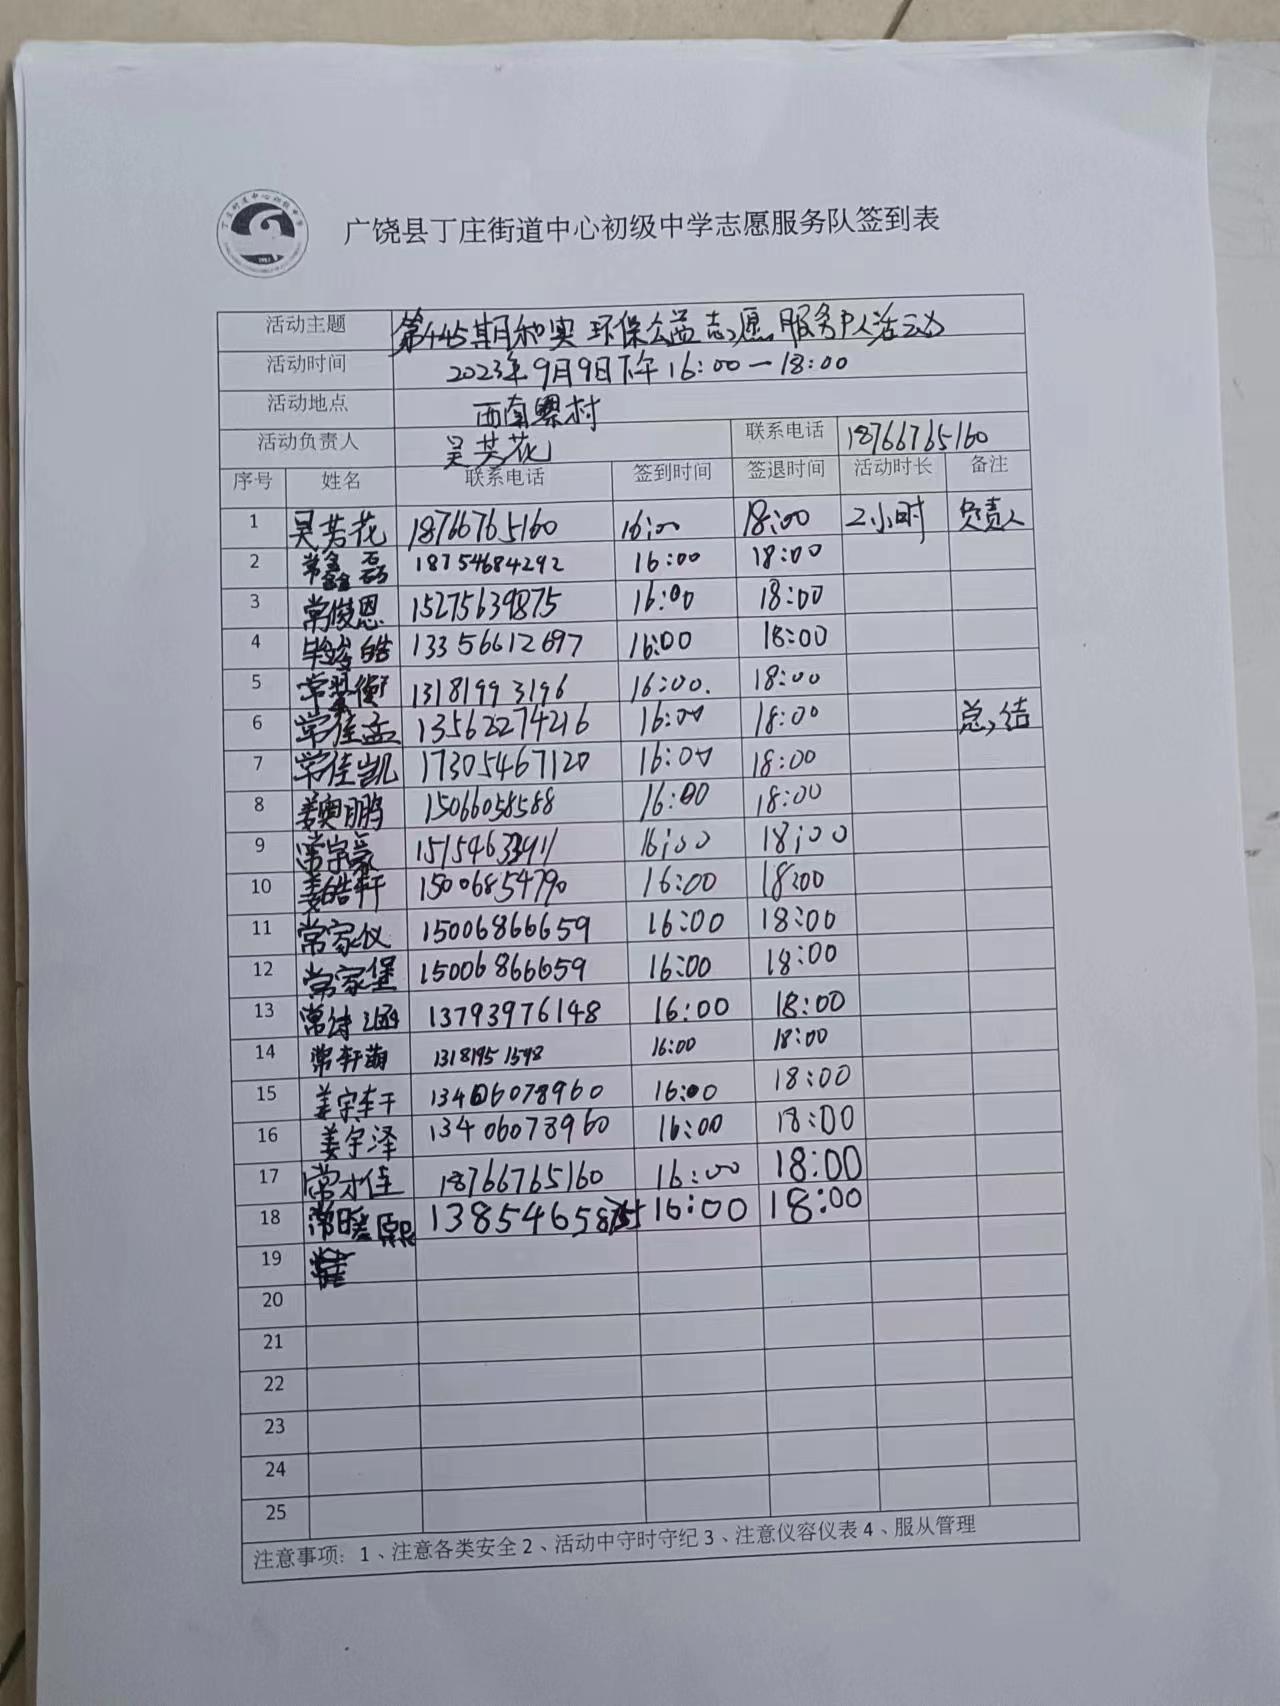 广饶县丁庄街道中心初级中学志愿服务队签到表
活动主题 第445期和实环保公益志愿服务队活动
活动时间 2023年9月9日下午16:00—18:00
活动地点 西南累村
活动负责人 吴芳花 联系电话 18766765160
序号 姓名 联系电话 签到时间 签退时间 活动时长 备注
1 吴芳花 18766765160 16:00 18:00 2小时 负责人
2 常鑫磊 18754684292 16:00 18:00
3 常俊恩 15275639875 16:00 18:00
4 皓 13356612697 16:00 18:00
5 常 衡 13181993196 16:00. 18:00
6 常佳孟 13562274216 16:00 18:00 总结
7 常佳凯 17305467120 16:00 18:00
8 姜奥鹏 15066058588 16:00 18:00
9 常宇豪 16:00 18:00
10 姜皓轩 15006854790 16:00 18:00
11 常家仪 15006866659 16:00 18:00
12 常家堡 15006866659 16:00 18:00
13 常诗涵 13793976148 16:00 18:00
14 常轩萌 16:00 18:00
15 姜宇轩 13406078960 16:00 18:00
16 姜宇泽 13406078960 16:00 18:00
17 常才佳 18766765160 16:00 18:00
18 常曦熙 16:00 18:00
19
20
21
22
23
24
25
注意事项：1、注意各类安全2、活动中守时守纪3、注意仪容仪表4、服从管理